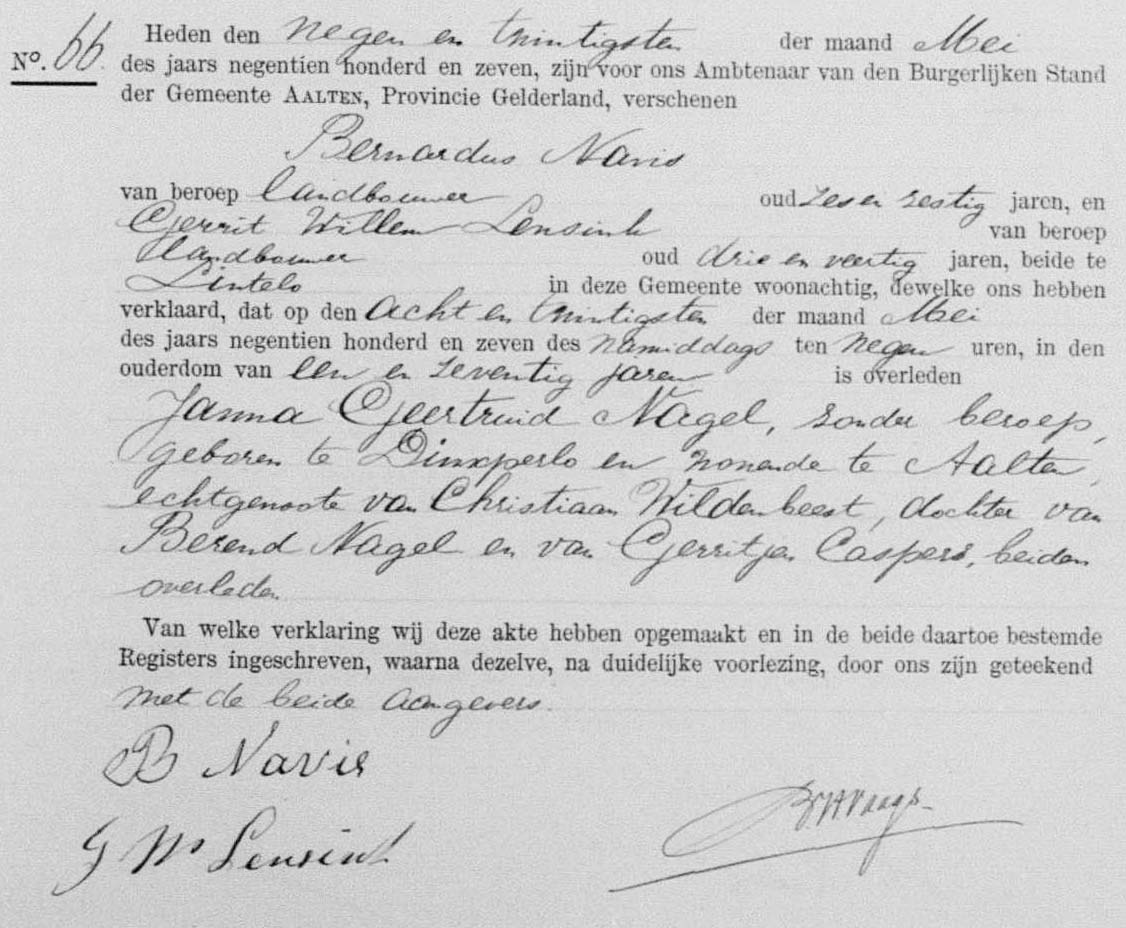 Heden den negen en twintigsten der maand Mei
No. 66.
des jaars negentien honderd en zeven, zijn voor ons Ambtenaar van den Burgerlijken Stand
der Gemeente AALTEN, Provincie Gelderland, verschenen
Bernardus Navis
van beroep landbouwer oud zes en zestig jaren, en
Gerrit Willem Lensink van beroep
landbouwer oud drie en veertig jaren, beide te
Lintelo in deze Gemeente woonachtig, dewelke ons hebben
verklaard, dat op den acht en twintigsten der maand Mei
des jaars negentien honderd en zeven des namiddags ten negen uren, in den
ouderdom van een en zeventig jaren is overleden
Janna Geertruid Nagel, zonder beroep,
geboren te Dinxperlo en wonende te Aalten,
echtgenoote van Christiaan Wildenbeest, dochter van
Berend Nagel en van Gerritjen Caspers, beiden
overleden.
Van welke verklaring wij deze akte hebben opgemaakt en in de beide daartoe bestemde
Registers ingeschreven, waarna dezelve, na duidelijke voorlezing, door ons zijn geteekend
met de beide aangevers.
B Navis
G W Lensink